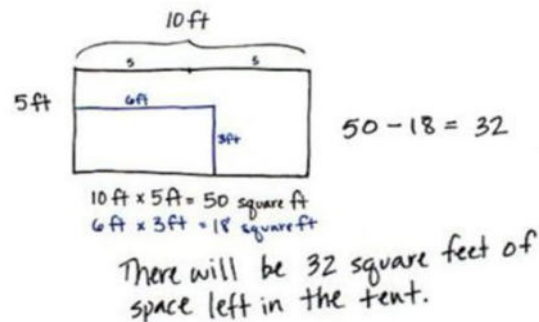 10 ft
5 5
5 ft
6ft
3ft
50 - 18 = 32
10 ft x 5 ft = 50 square ft
6 ft x 3 ft = 18 square ft
There will be 32 square feet of
space left in the tent.